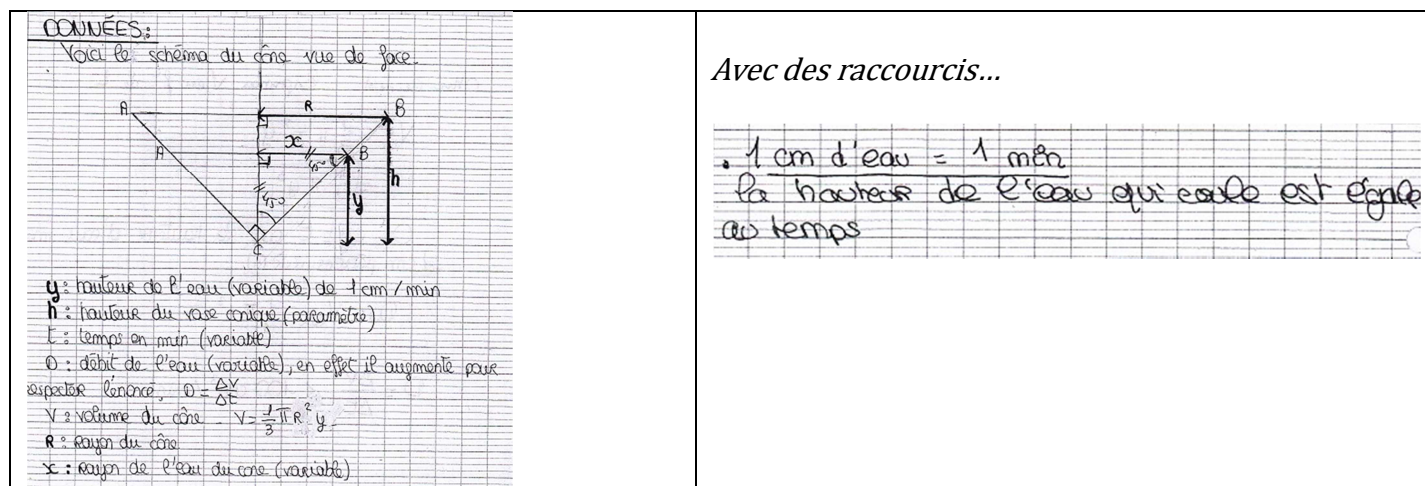 DONNÉES:
Voici le schéma du cône vue de face.
A R B
A x B
45° h
45° y
C
y: hauteur de l'eau (variable) de 1 cm / min
h: hauteur du vase conique (paramètre)
t: temps en min (variable)
D: débit de l'eau (variable), en effet il augmente pour
respecter l'énoncé. D = ΔV/Δt
V: volume du cône. V = 1/3 π R² y.
R: rayon du cône
x: rayon de l'eau du cone (variable)
Avec des raccourcis...
. 1 cm d'eau = 1 min
la hauteur de l'eau qui coule est égale
au temps